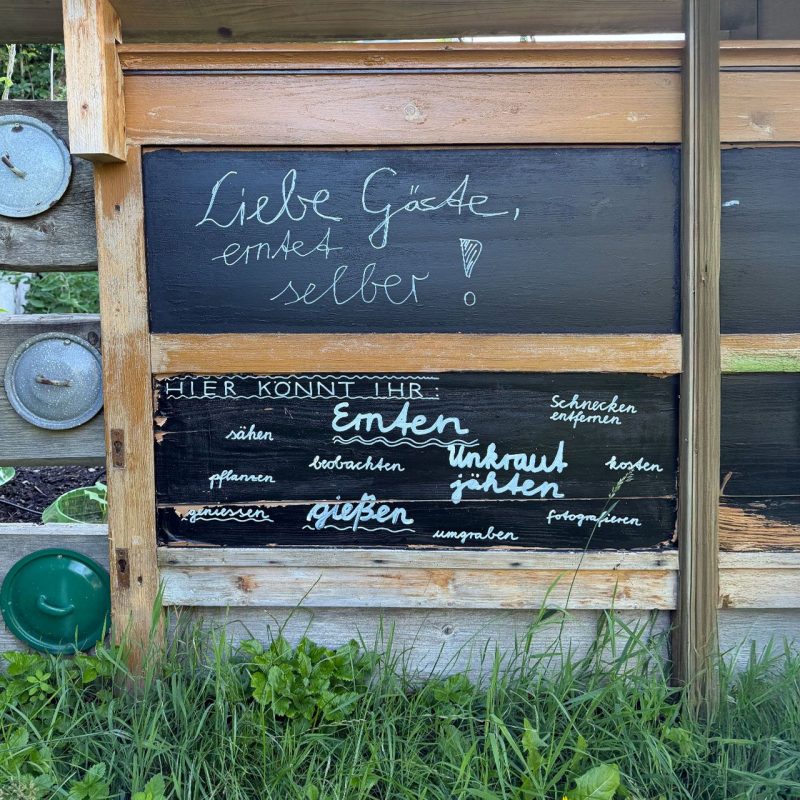 Liebe Gäste,
erntet
selber!
HIER KÖNNT IHR:
Ernten
Schnecken
entfernen
sähen
beobachten
Unkraut
jähten
kosten
pflanzen
genießen
gießen
umgraben
fotografieren